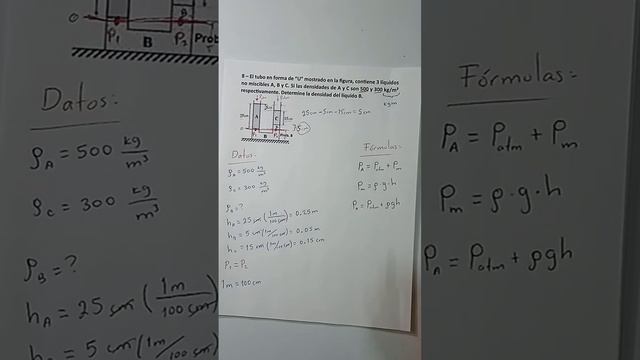 P₁
B
P₂
Prob
Datos:
ρA = 500 kg/m³
ρC = 300 kg/m³
ρB = ?
hA = 25 cm (1m/100cm)
= 5 cm (1m/100
8 – El tubo en forma de "U" mostrado en la figura, contiene 3 líquidos
no miscibles A, B y C. Si las densidades de A y C son 500 y 300 kg/m³
respectivamente. Determine la densidad del líquido B.
kg/m
25cm – 5cm – 15cm = 5cm
A
C
P₁
B
P₂
Datos:
ρA = 500 kg/m³
ρC = 300 kg/m³
ρB = ?
hA = 25 cm (1m/100cm) = 0.25m
hB = 5 cm (1m/100cm) = 0.05m
hC = 15 cm (1m/100cm) = 0.15 cm
P₁ = P₂
1m = 100cm
Fórmulas:
PA = Patm + Pm
Pm = ρ·g·h
PA = Patm + ρgh
Fórmulas:
PA = Patm + Pm
Pm = ρ·g·h
PA = Patm + ρgh